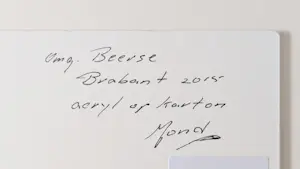 Omg. Beerse
Brabant 2015
acryl op karton
Mond